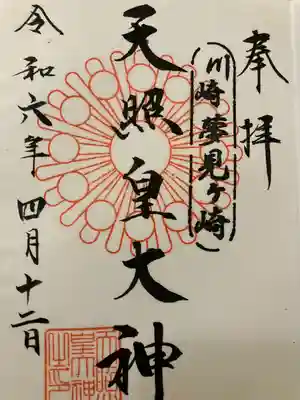 奉拝
(川崎夢見ヶ崎)
天照皇大神
令和六年 四月十二日